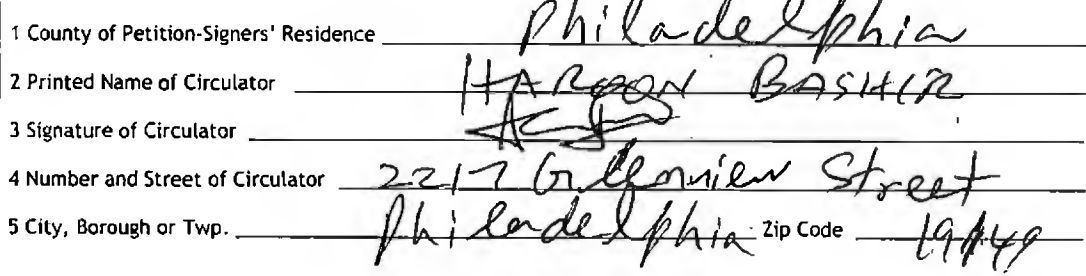 1 County of Petition-Signers' Residence Philadelphia
2 Printed Name of Circulator HAROON BASHIR
3 Signature of Circulator
4 Number and Street of Circulator 2217 Street
5 City, Borough or Twp. Philadelphia Zip Code 19149